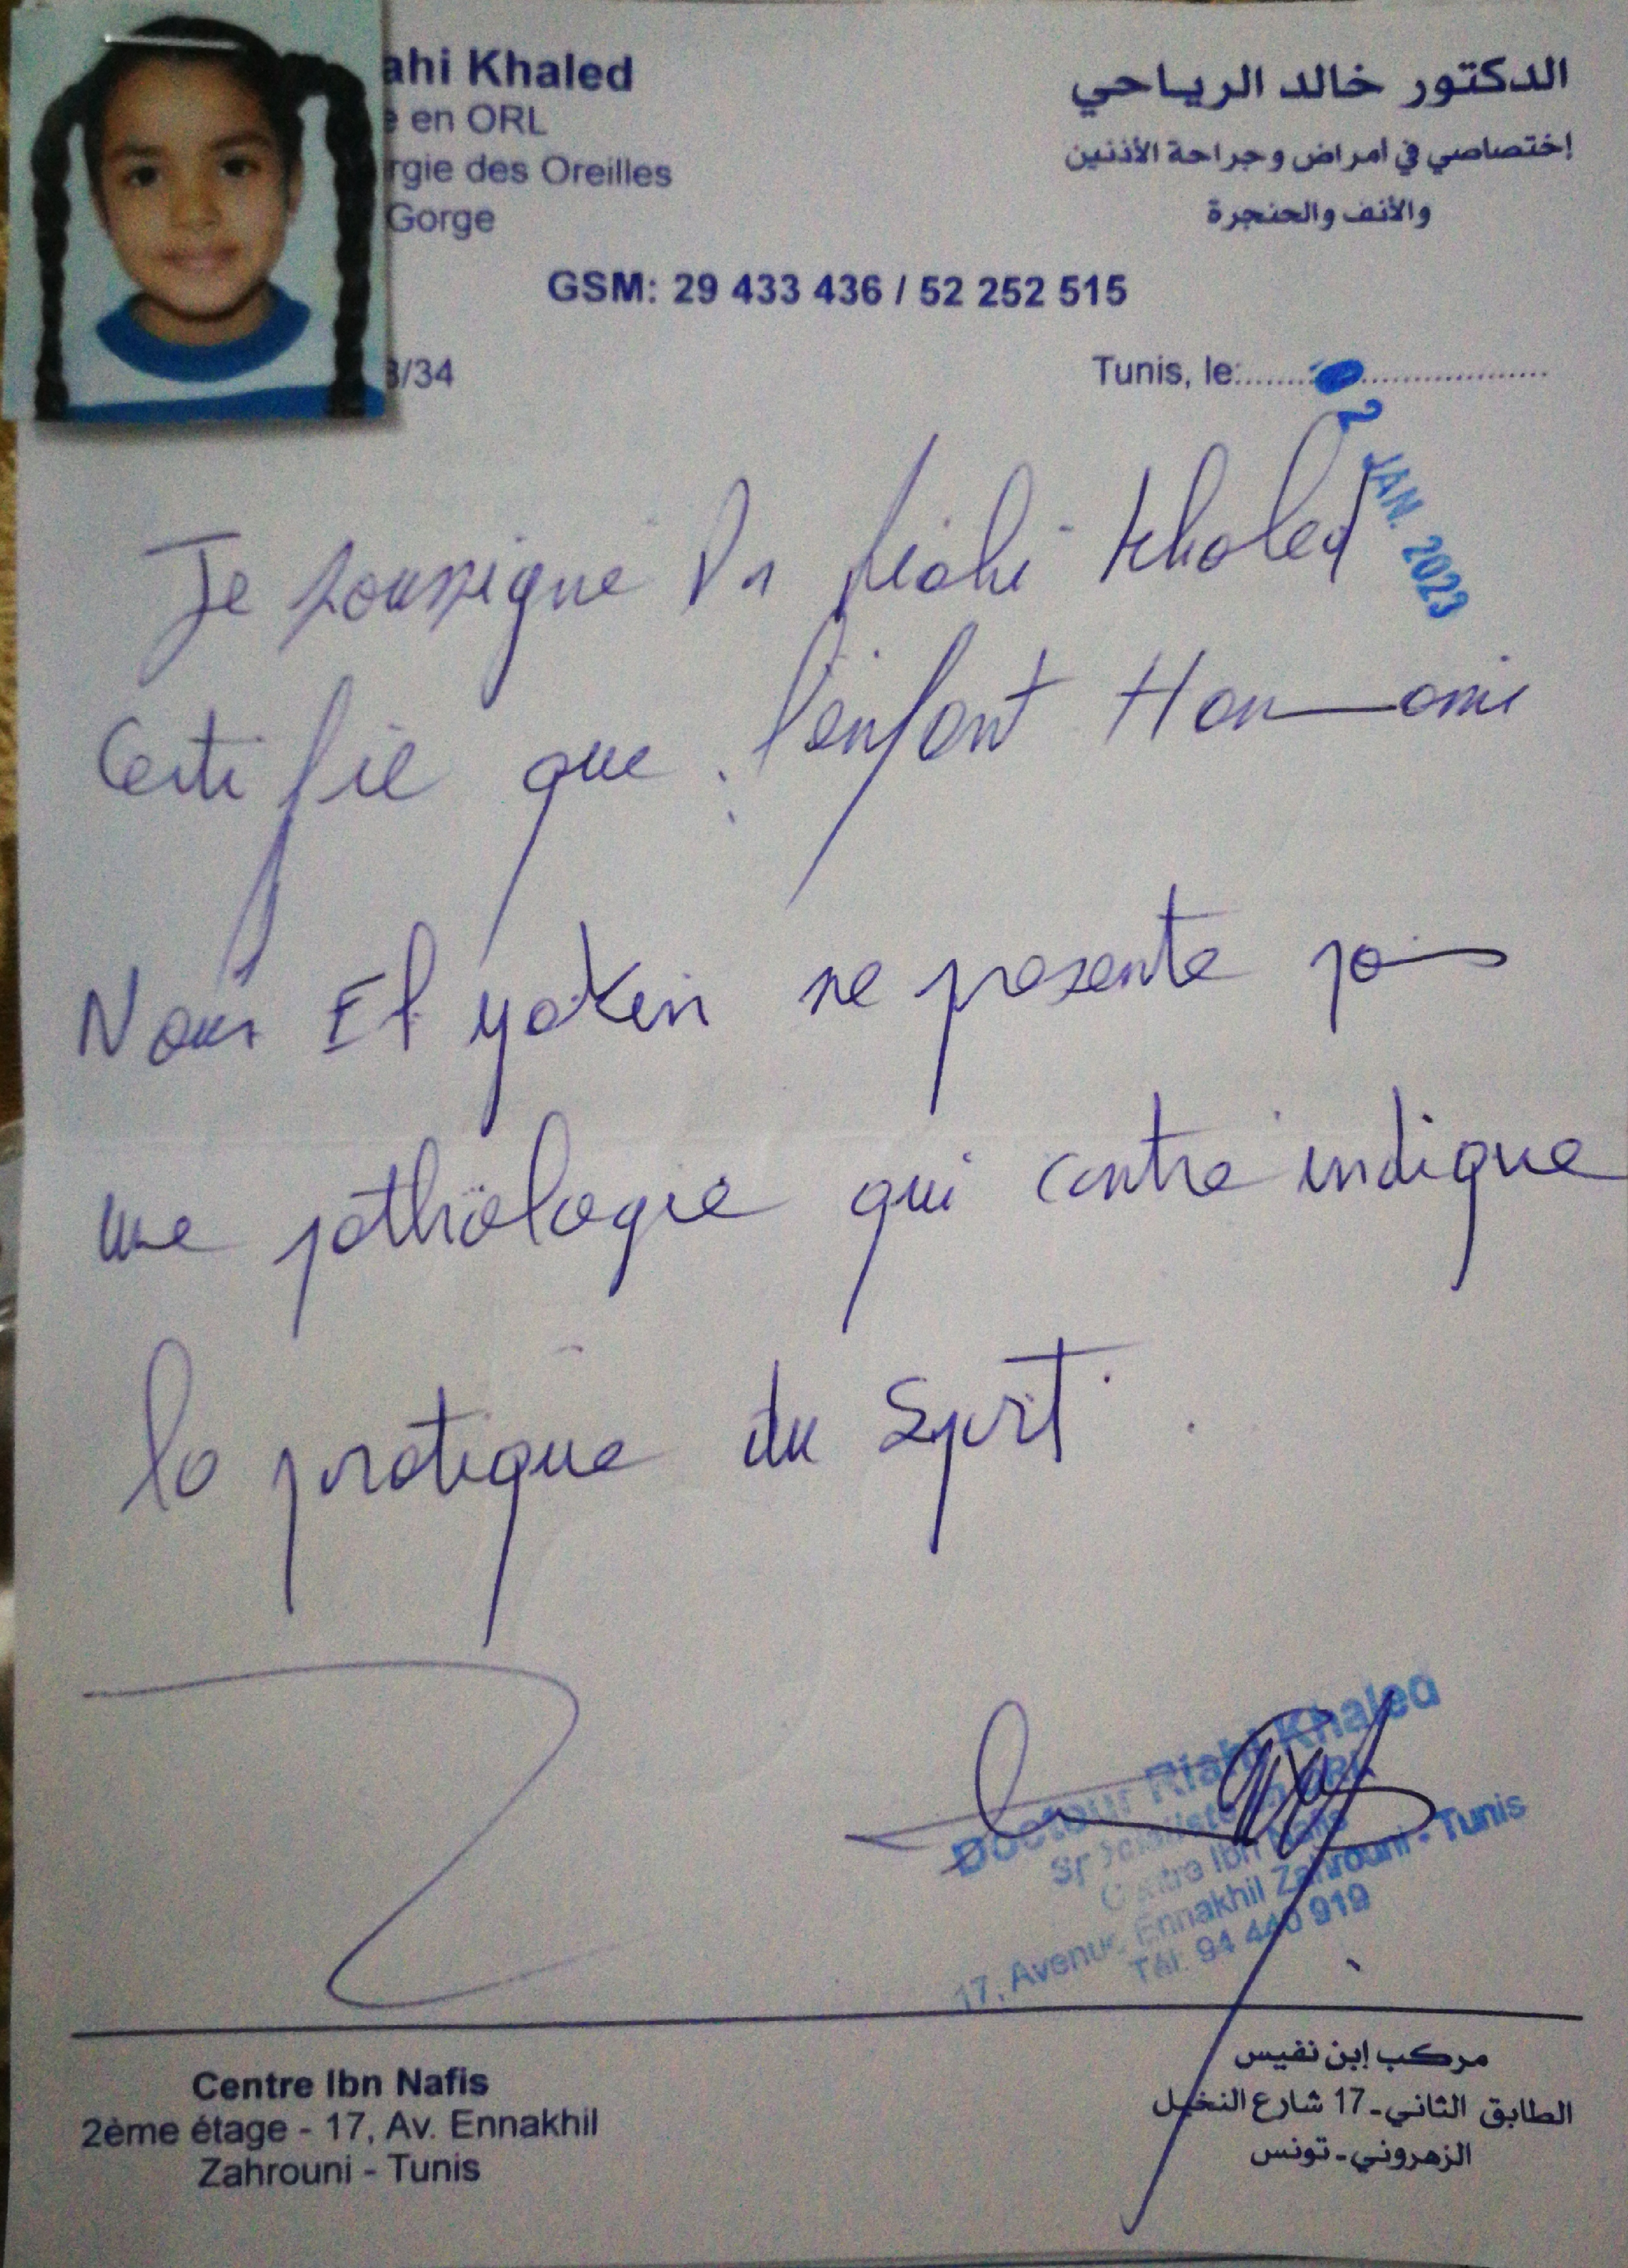 ahi Khaled
e en ORL
rgie des Oreilles
Gorge
الدكتور خالد الرياحي
إختصاصي في أمراض و جراحة الأذنين
والأنف والحنجرة
GSM: 29 433 436 / 52 252 515
3/34
Tunis, le:
2 JAN. 2023
Je soussigné Dr Riahi Khaled
Certifie que l'enfant Hammami
Nour El yakin ne présente pas
une pathologie qui contre indique
la pratique du Sport.
Docteur Riahi Khaled
Spécialiste en ORL
Centre Ibn Nafis
17, Avenue Ennakhil Zahrouni - Tunis
Tél: 94 440 919
Centre Ibn Nafis
2ème étage - 17, Av. Ennakhil
Zahrouni - Tunis
مركب إبن نفيس
الطابق الثاني - 17 شارع النخيل
الزهروني - تونس